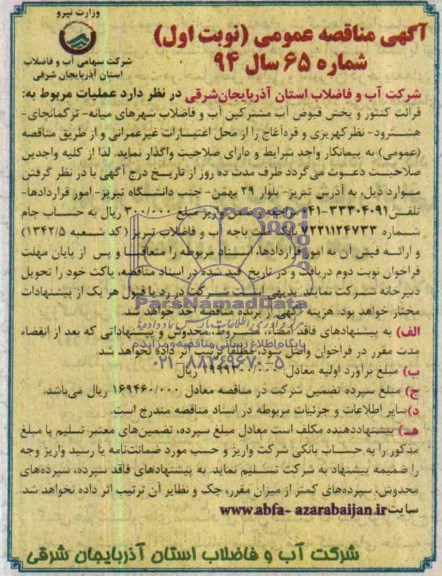 وزارت نیرو
شرکت سهامی آب و فاضلاب
استان آذربایجان شرقی
آگهی مناقصه عمومی (نوبت اول)
شماره ۶۵ سال ۹۴
شرکت آب و فاضلاب استان آذربایجان‌شرقی در نظر دارد عملیات مربوط به:
قرائت کنتور و پخش قبوض آب مشترکین آب و فاضلاب شهرهای میانه- ترکمانچای-
هشترود- نظرکهریزی و قره‌آغاج را از محل اعتبارات غیرعمرانی و از طریق مناقصه
(عمومی) به پیمانکار واجد شرایط و دارای صلاحیت واگذار نماید. لذا از کلیه واجدین
صلاحیت دعوت می‌گردد ظرف مدت ده روز از تاریخ درج آگهی با در نظر گرفتن
موارد ذیل، به آدرس تبریز- بلوار ۲۹ بهمن- جنب دانشگاه تبریز- امور قراردادها-
تلفن ۳۳۳۰۴۰۹۱-۰۴۱ مراجعه و ضمن واریز مبلغ ۳۰۰/۰۰۰ ریال به حساب جام
شماره ۷۲۲۱۱۲۴۷۳۳ بانک ملت باجه آب و فاضلاب تبریز (کد شعبه ۱۳۴۲/۵)
و ارائه فیش آن به امور قراردادها، اسناد مربوطه را متعاقباً و پس از پایان مهلت
فراخوان نوبت دوم دریافت و در تاریخ قید شده در اسناد مناقصه، پاکت خود را تحویل
دبیرخانه شرکت نمایند. بدیهی است شرکت در رد یا قبول هر یک از پیشنهادات
مختار خواهد بود. هزینه آگهی از برنده مناقصه اخذ خواهد شد.
الف) به پیشنهادهای فاقد امضاء، مشروط، مخدوش و پیشنهاداتی که بعد از انقضاء
مدت مقرر در فراخوان واصل شود، مطلقاً ترتیب اثر داده نخواهد شد.
ب) مبلغ برآورد اولیه معادل ریال
ج) مبلغ سپرده تضمین شرکت در مناقصه معادل ۱۶۹۴۶۰/۰۰۰ ریال می‌باشد.
د) سایر اطلاعات و جزئیات مربوطه در اسناد مناقصه مندرج است.
هـ) پیشنهاددهنده مکلف است معادل مبلغ سپرده، تضمین‌های معتبر تسلیم یا مبلغ
مذکور را به حساب بانکی شرکت واریز و حسب مورد ضمانت‌نامه یا رسید واریز وجه
را ضمیمه پیشنهاد به شرکت تسلیم نماید. به پیشنهادهای فاقد سپرده، سپرده‌های
مخدوش، سپرده‌های کمتر از میزان مقرر، چک و نظایر آن ترتیب اثر داده نخواهد شد.
سایت www.abfa- azarabaijan.ir
شرکت آب و فاضلاب استان آذربایجان شرقی
ParsNamadData
پایگاه اطلاع رسانی مناقصه و مزایده
۰۲۱-۸۸۳۴۹۶۷۰-۵